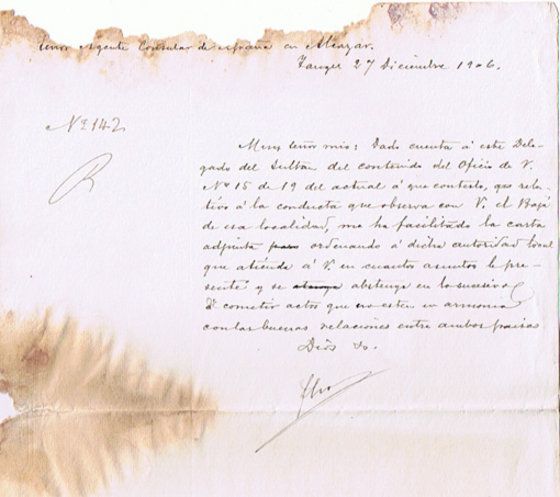 Señor Agente Consular de España en Alcazar.
Tanger 27 Diciembre 1906.
Nº 142
Muy señor mio: Dado cuenta á este Dele-
gado del Sultán del contenido del Oficio de V.
Nº 15 de 19 del actual á que contesto, que rela-
tivo á la conducta que observa con V. el Bajá
de esa localidad, me ha facilitado la carta
adjunta ordenando á dicha autoridad local
que atienda á V. en cuantos asuntos le pre-
sente y se abstenga en lo sucesivo
de cometer actos que no esten en armonia
con las buenas relaciones entre ambos paises
Dios &.